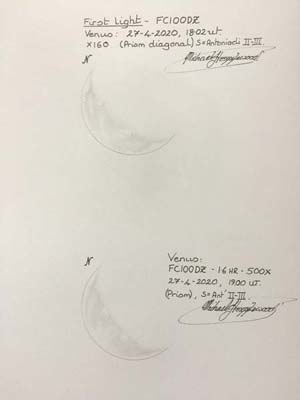 First Light - FC100DZ
Venus: 27-4-2020, 18:02 ut
x160 (Prism diagonal) S=Antoniadi II-III.
N
N
Venus:
FC100DZ - 16HR - 500X
27-4-2020, 19:00 ut.
(Prism), S=Ant' II-III.